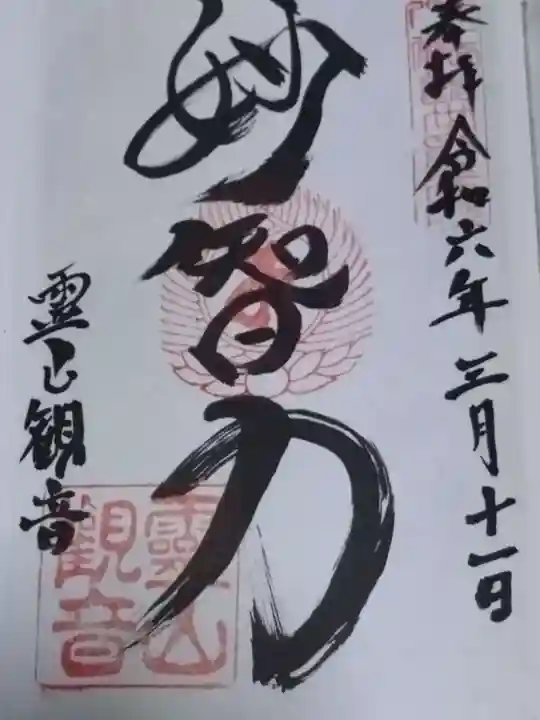 奉拝 令和六年三月十一日
妙智力
霊山観音
靈山
観音